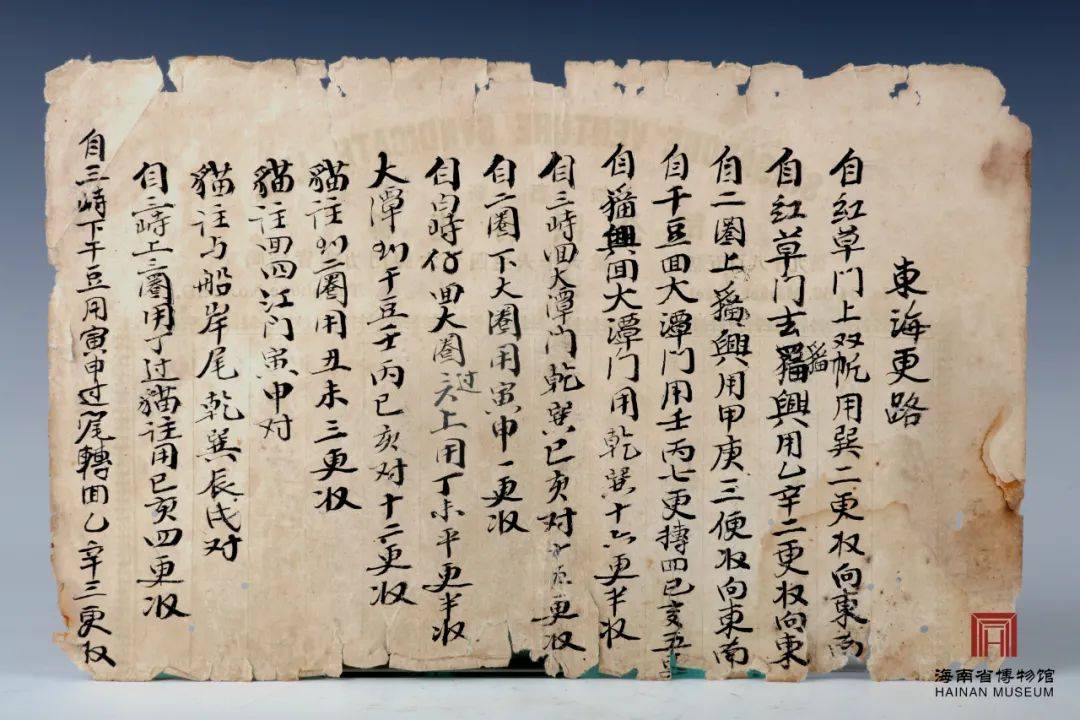 東海更路
自红草门上双帆用巽二更收向東南
自红草门去猫興用乙辛二更收向東
猫
自二圈上猫興用甲庚三便收向東南
自干豆回大潭门用壬丙七更轉四已亥五
自猫興回大潭门用乾巽十六更半收
自三峙回大潭门乾巽已亥对更收
自二圈下大圈用寅申一更收
自白峙仔回大圈上用丁未平更半收
过
大潭刘干豆壬丙已亥对十二更收
猫注刘二圈用丑未三更收
猫注回四江门寅申对
猫注与船岸尾乾巽辰戌对
自三峙上三圈用丁过猫注用已亥四更收
自三峙下干豆用寅申过尾轉回乙辛三更收
VENTURE SYNDICATE
海南省博物馆
HAINAN MUSEUM